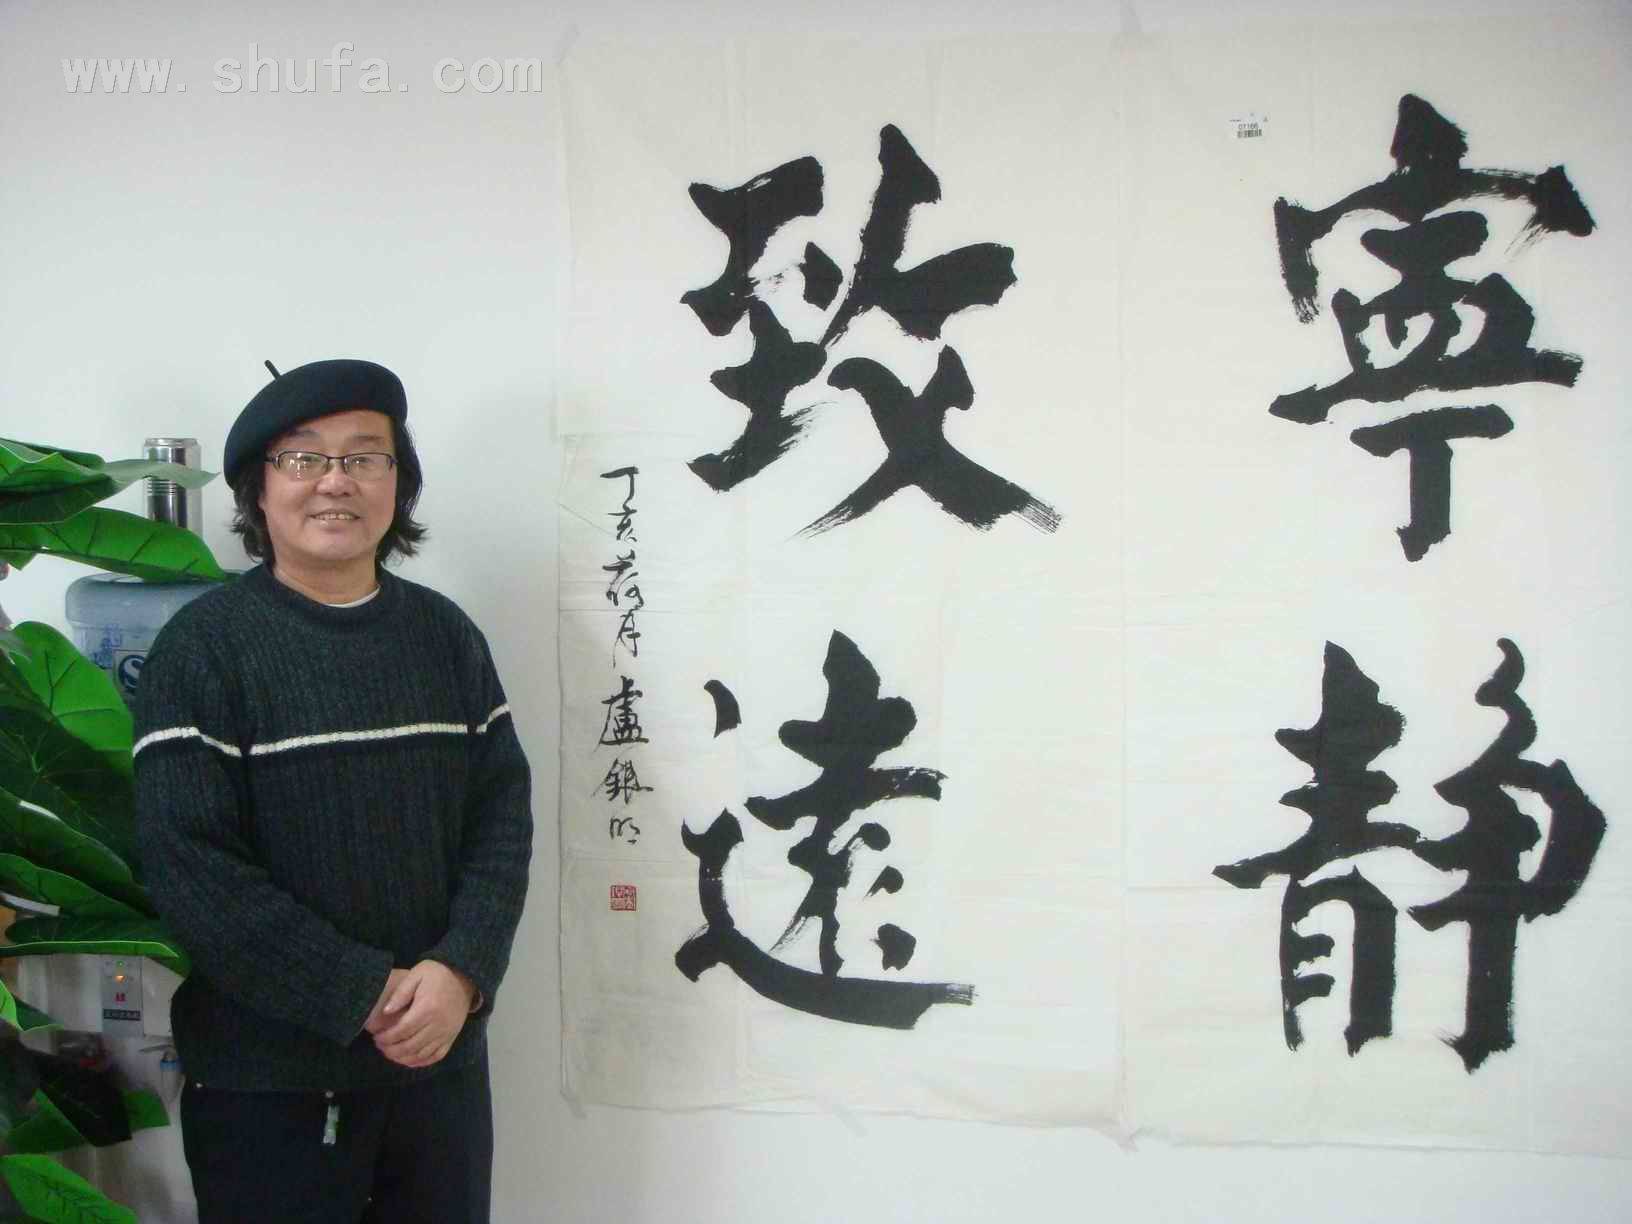 www.shufa.com
寧靜
致遠
丁亥荷月盧銀明
07166